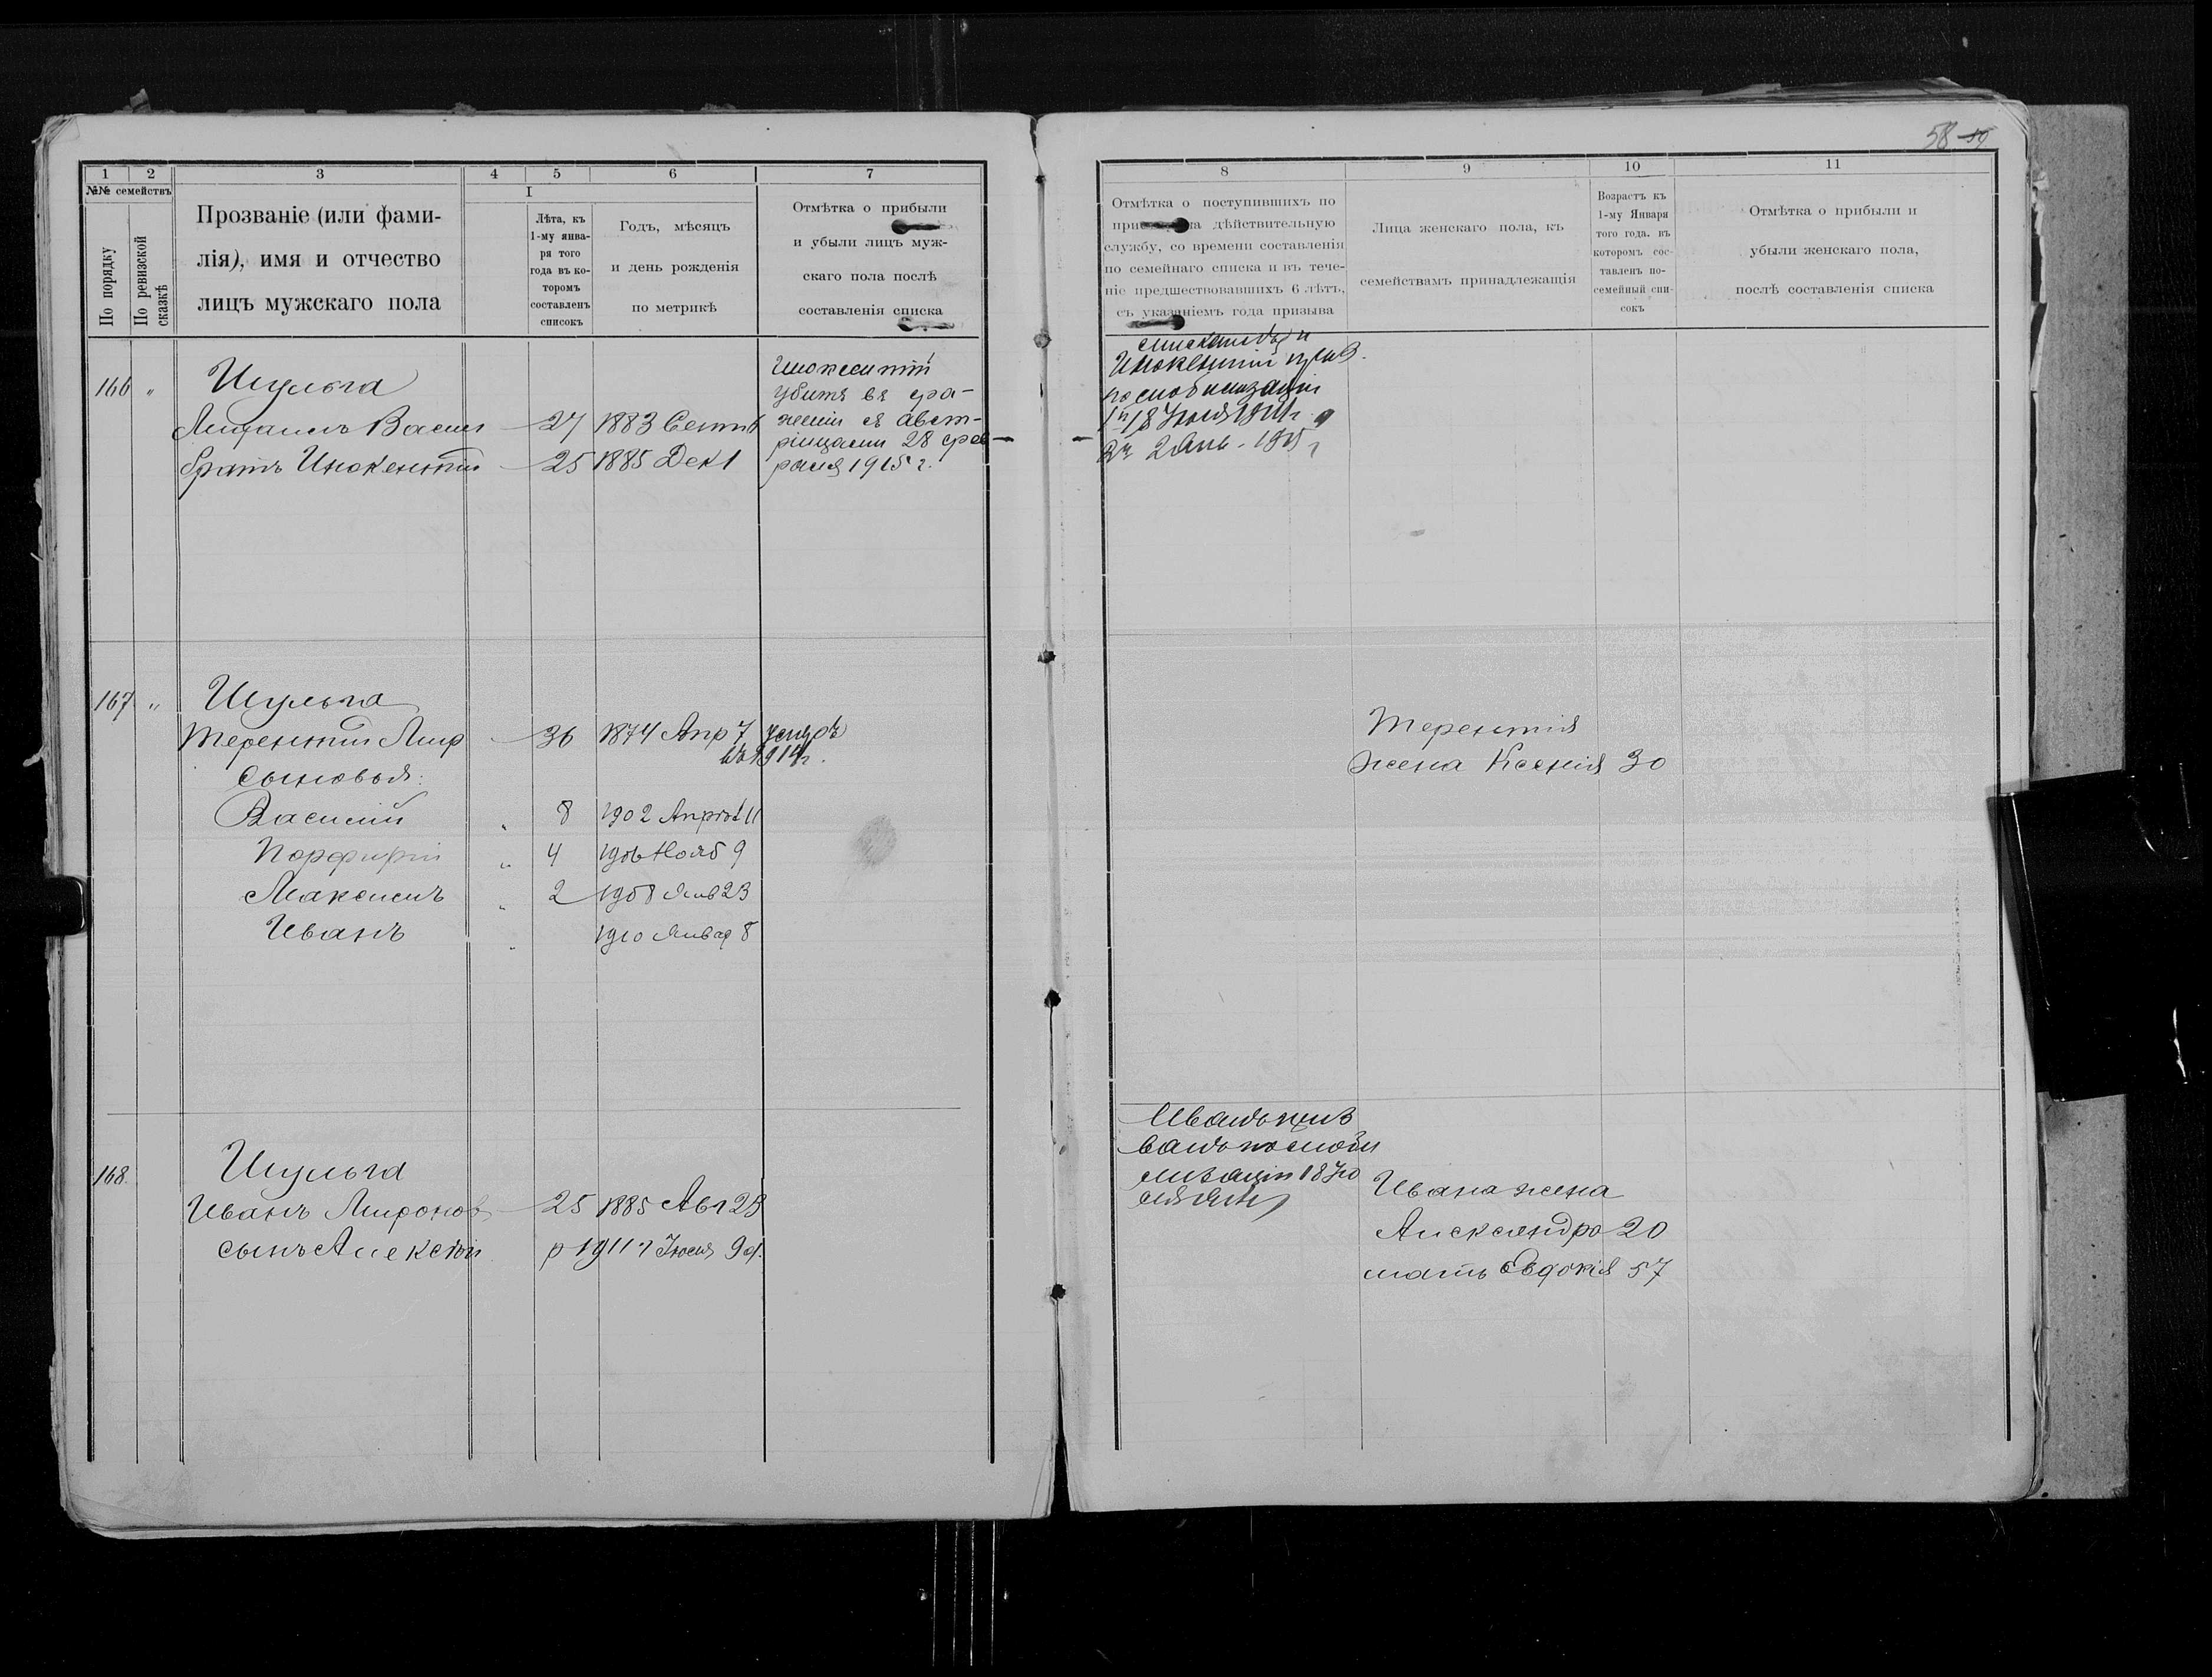 58 59
1 2 3 4 5 6 7
№№ семействъ
По порядку
По ревизской сказкѣ
Прозваніе (или фами-
лія), имя и отчество
лицъ мужскаго пола
I
Лѣта, къ
1-му янва-
ря того
года въ ко-
торомъ
составленъ
списокъ
Годъ, мѣсяцъ
и день рожденія
по метрикѣ
Отмѣтка о прибыли
и убыли лицъ муж-
скаго пола послѣ
составленія списка
166 " Шульга
Василь 27 1883 Сент 6
братъ Инокентій 25 1885 Дек 1
Инокентій
убитъ въ сра-
женіи съ авст-
рійцами 28 фев
раля 1915 г.
167 " Шульга
Терентій Мир 36 1874 Апр 7 умеръ
въ 1914 г.
сыновья:
Василій " 8 1902 Апрѣл 11
Порфирій " 4 1906 Нояб 9
Максимъ " 2 1908 Янв 23
Иванъ " 1910 Январ 8
168. Шульга
Иванъ Миронов 25 1885 Авг 23
сынъ Алексѣй р 1911 г Іюля 9 д.
8 9 10 11
Отмѣтка о поступившихъ по
при на дѣйствительную
службу, со времени составленія
по семейнаго списка и въ тече-
ніе предшествовавшихъ 6 лѣтъ,
съ указаніемъ года призыва
Лица женскаго пола, къ
семействамъ принадлежащія
Возрастъ къ
1-му Января
того года. въ
которомъ сос-
тавленъ по-
семейный спи-
сокъ
Отмѣтка о прибыли и
убыли женскаго пола,
послѣ составленія списка
и
Инокентій призв.
по мобилизаціи
1й 18 Іюля 1914 г. а
2й 2 Янв. 1915 г
Терентія
жена Ксенія 30
Иванъ приз
ванъ по моби
лизаціи 18 Ію
ля
Ивана жена
Александра 20
мать Евдокія 57